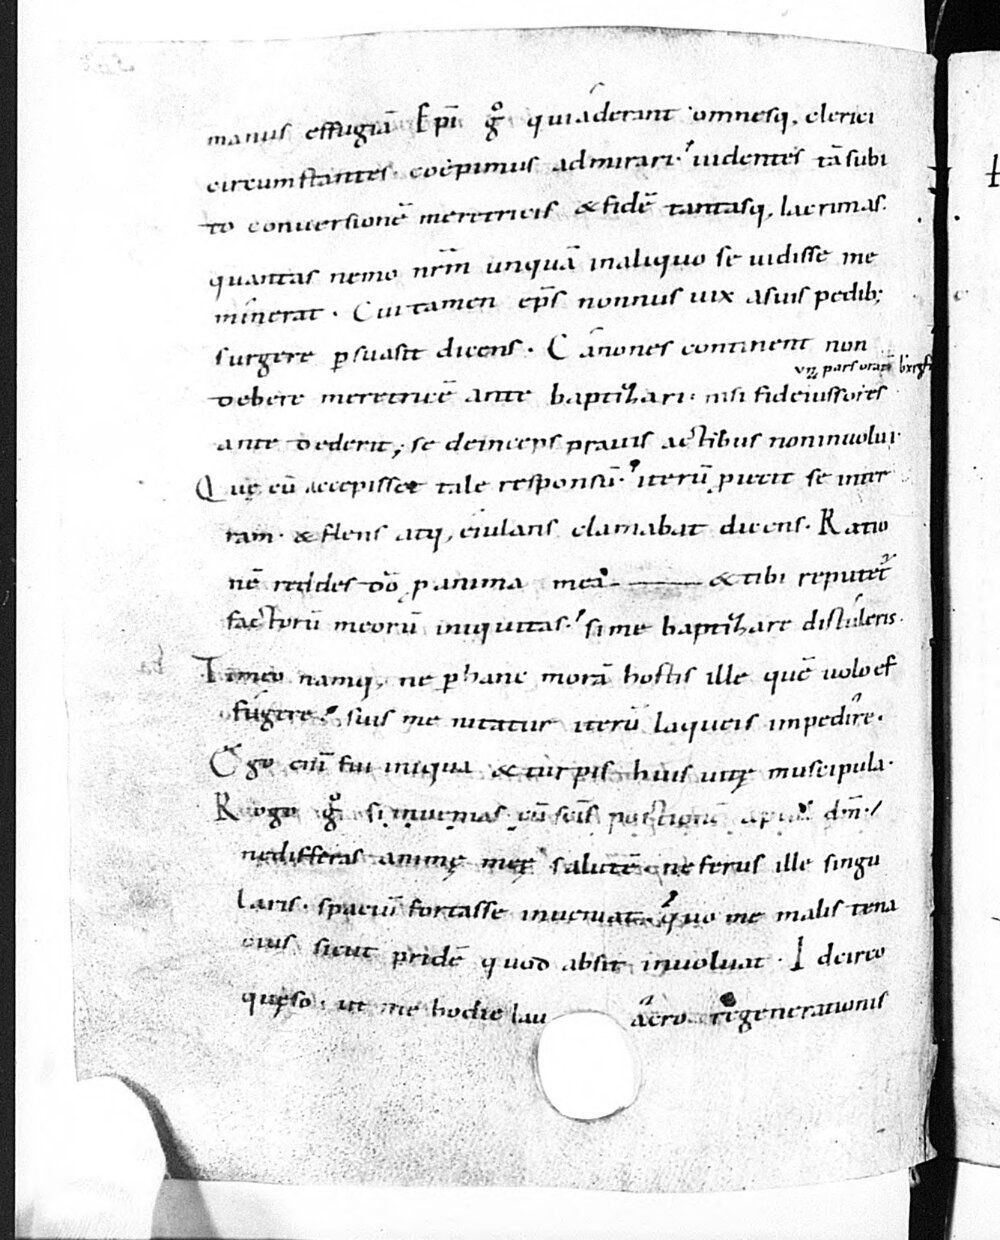 manus effugiā Ep̄i gͦ quiaderant omnesq, clerici
circumstantes. coepimus admirari. uidentes tā subi
to conuersionē meretricis & fidē tantasq, lacrimas.
quantas nemo nr̄m unquā inaliquo se uidisse me
minerat. Cui tamen ep̄s nonnus uix asuis pedib;
surgere p̱suasit dicens. Canones continent non
debere meretricē ante baptizari. nisi fideiussores
ante dederit; se deinceps prauis actibus noninuolui
Quę cū accepisset tale responsū. iterū ꝓiecit se inter
ram. & flens atq, eiulans clamabat dicens. Ratio
nē reddes dō̄ ꝓ anima mea. & tibi reputet᷑
factorū meorū iniquitas. si me baptizare distuleris.
Timeo namq, ne p̱ hanc morā hostis ille quē uolo ef
fugere. suis me nitatur iterū laqueis impedire.
Ego eni̅ fui iniqua & turpis huius uitę muscipula.
Rogo gͦ si inuenias cū scīs portionē apud dm̄.
nedifferas animę meę salutē. ne ferus ille singu
laris. spaciū fortasse inueniat. quo me malis tena
cius sicut pridē quod absit inuoluat. Idcirco
quęso. ut me hodie lau acro regenerationis